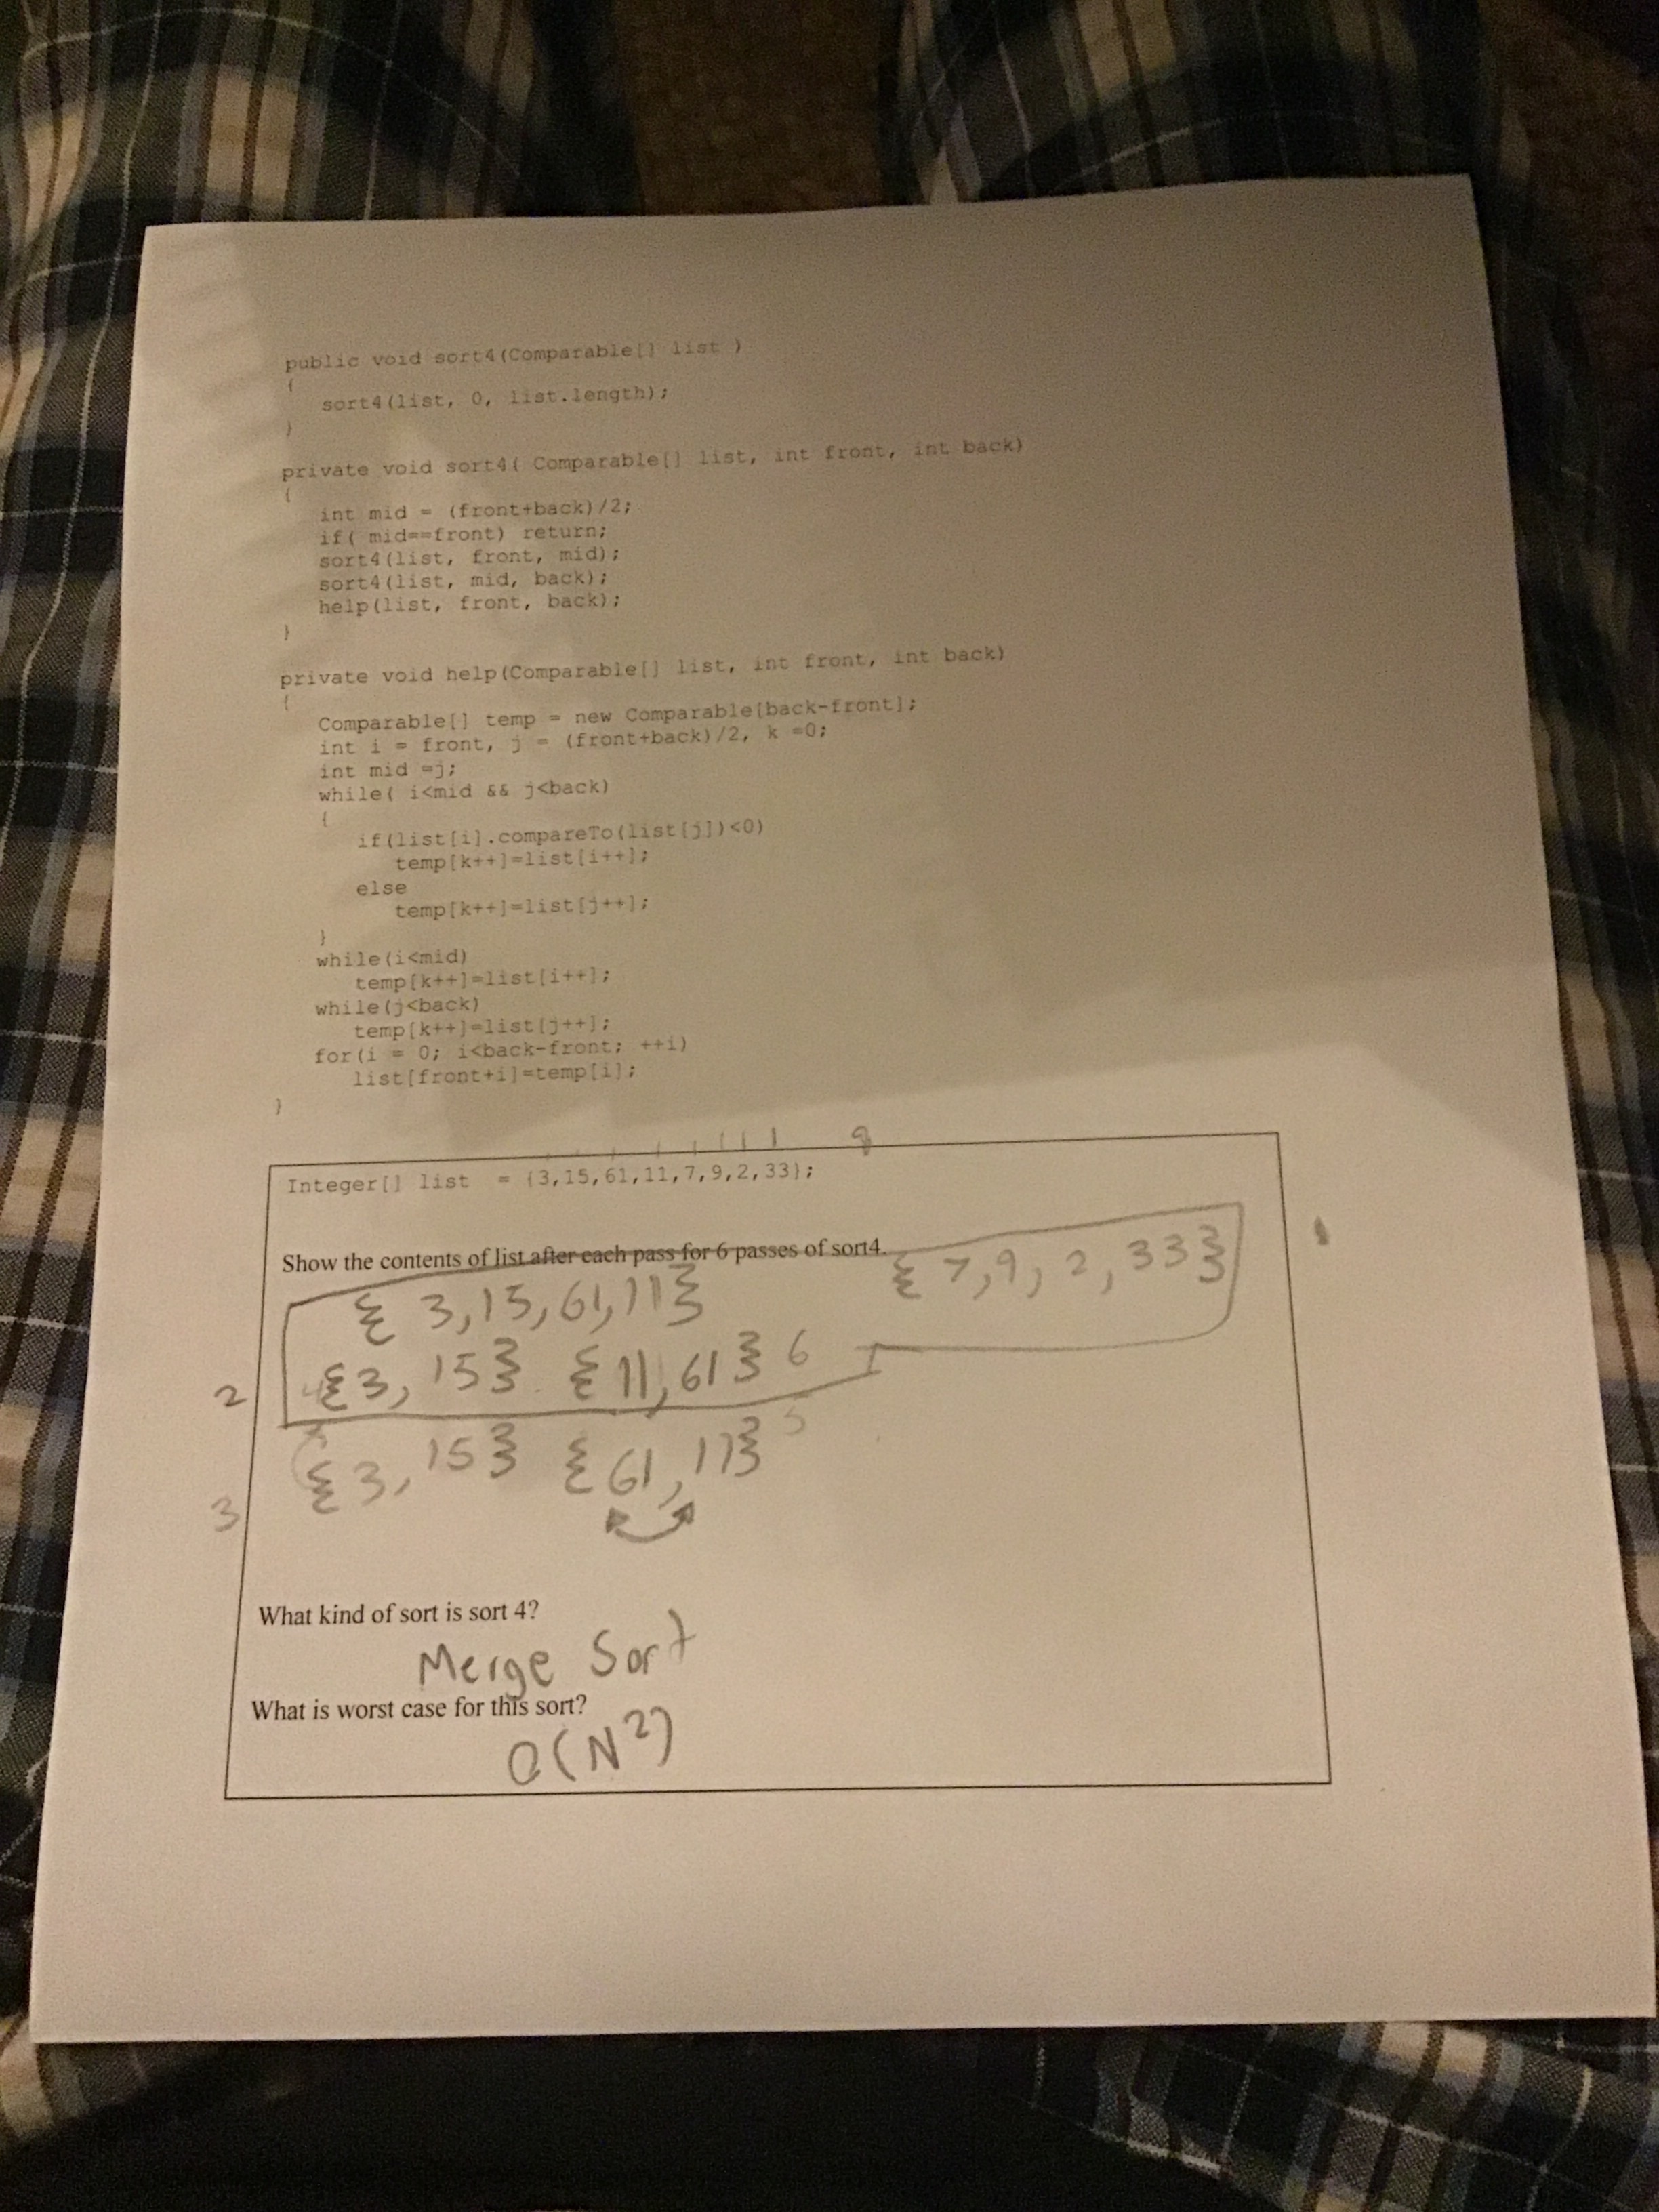 public void sort4(Comparable[] list )
{
sort4(list, 0, list.length);
}
private void sort4( Comparable[] list, int front, int back)
{
int mid = (front+back)/2;
if( mid==front) return;
sort4(list, front, mid);
sort4(list, mid, back);
help(list, front, back);
}
private void help(Comparable[] list, int front, int back)
{
Comparable[] temp = new Comparable[back-front];
int i = front, j = (front+back)/2, k =0;
int mid =j;
while( i<mid && j<back)
{
if(list[i].compareTo(list[j])<0)
temp[k++]=list[i++];
else
temp[k++]=list[j++];
}
while(i<mid)
temp[k++]=list[i++];
while(j<back)
temp[k++]=list[j++];
for(i = 0; i<back-front; ++i)
list[front+i]=temp[i];
}
8
Integer[] list = {3,15,61,11,7,9,2,33};
Show the contents of list after each pass for 6 passes of sort4.
{ 3,15,61,11} { 7,9,2,33} 1
2 {3, 15} {11,61} 6
{3, 15} {61, 11} 5
3
What kind of sort is sort 4?
Merge Sort
What is worst case for this sort?
O(N²)